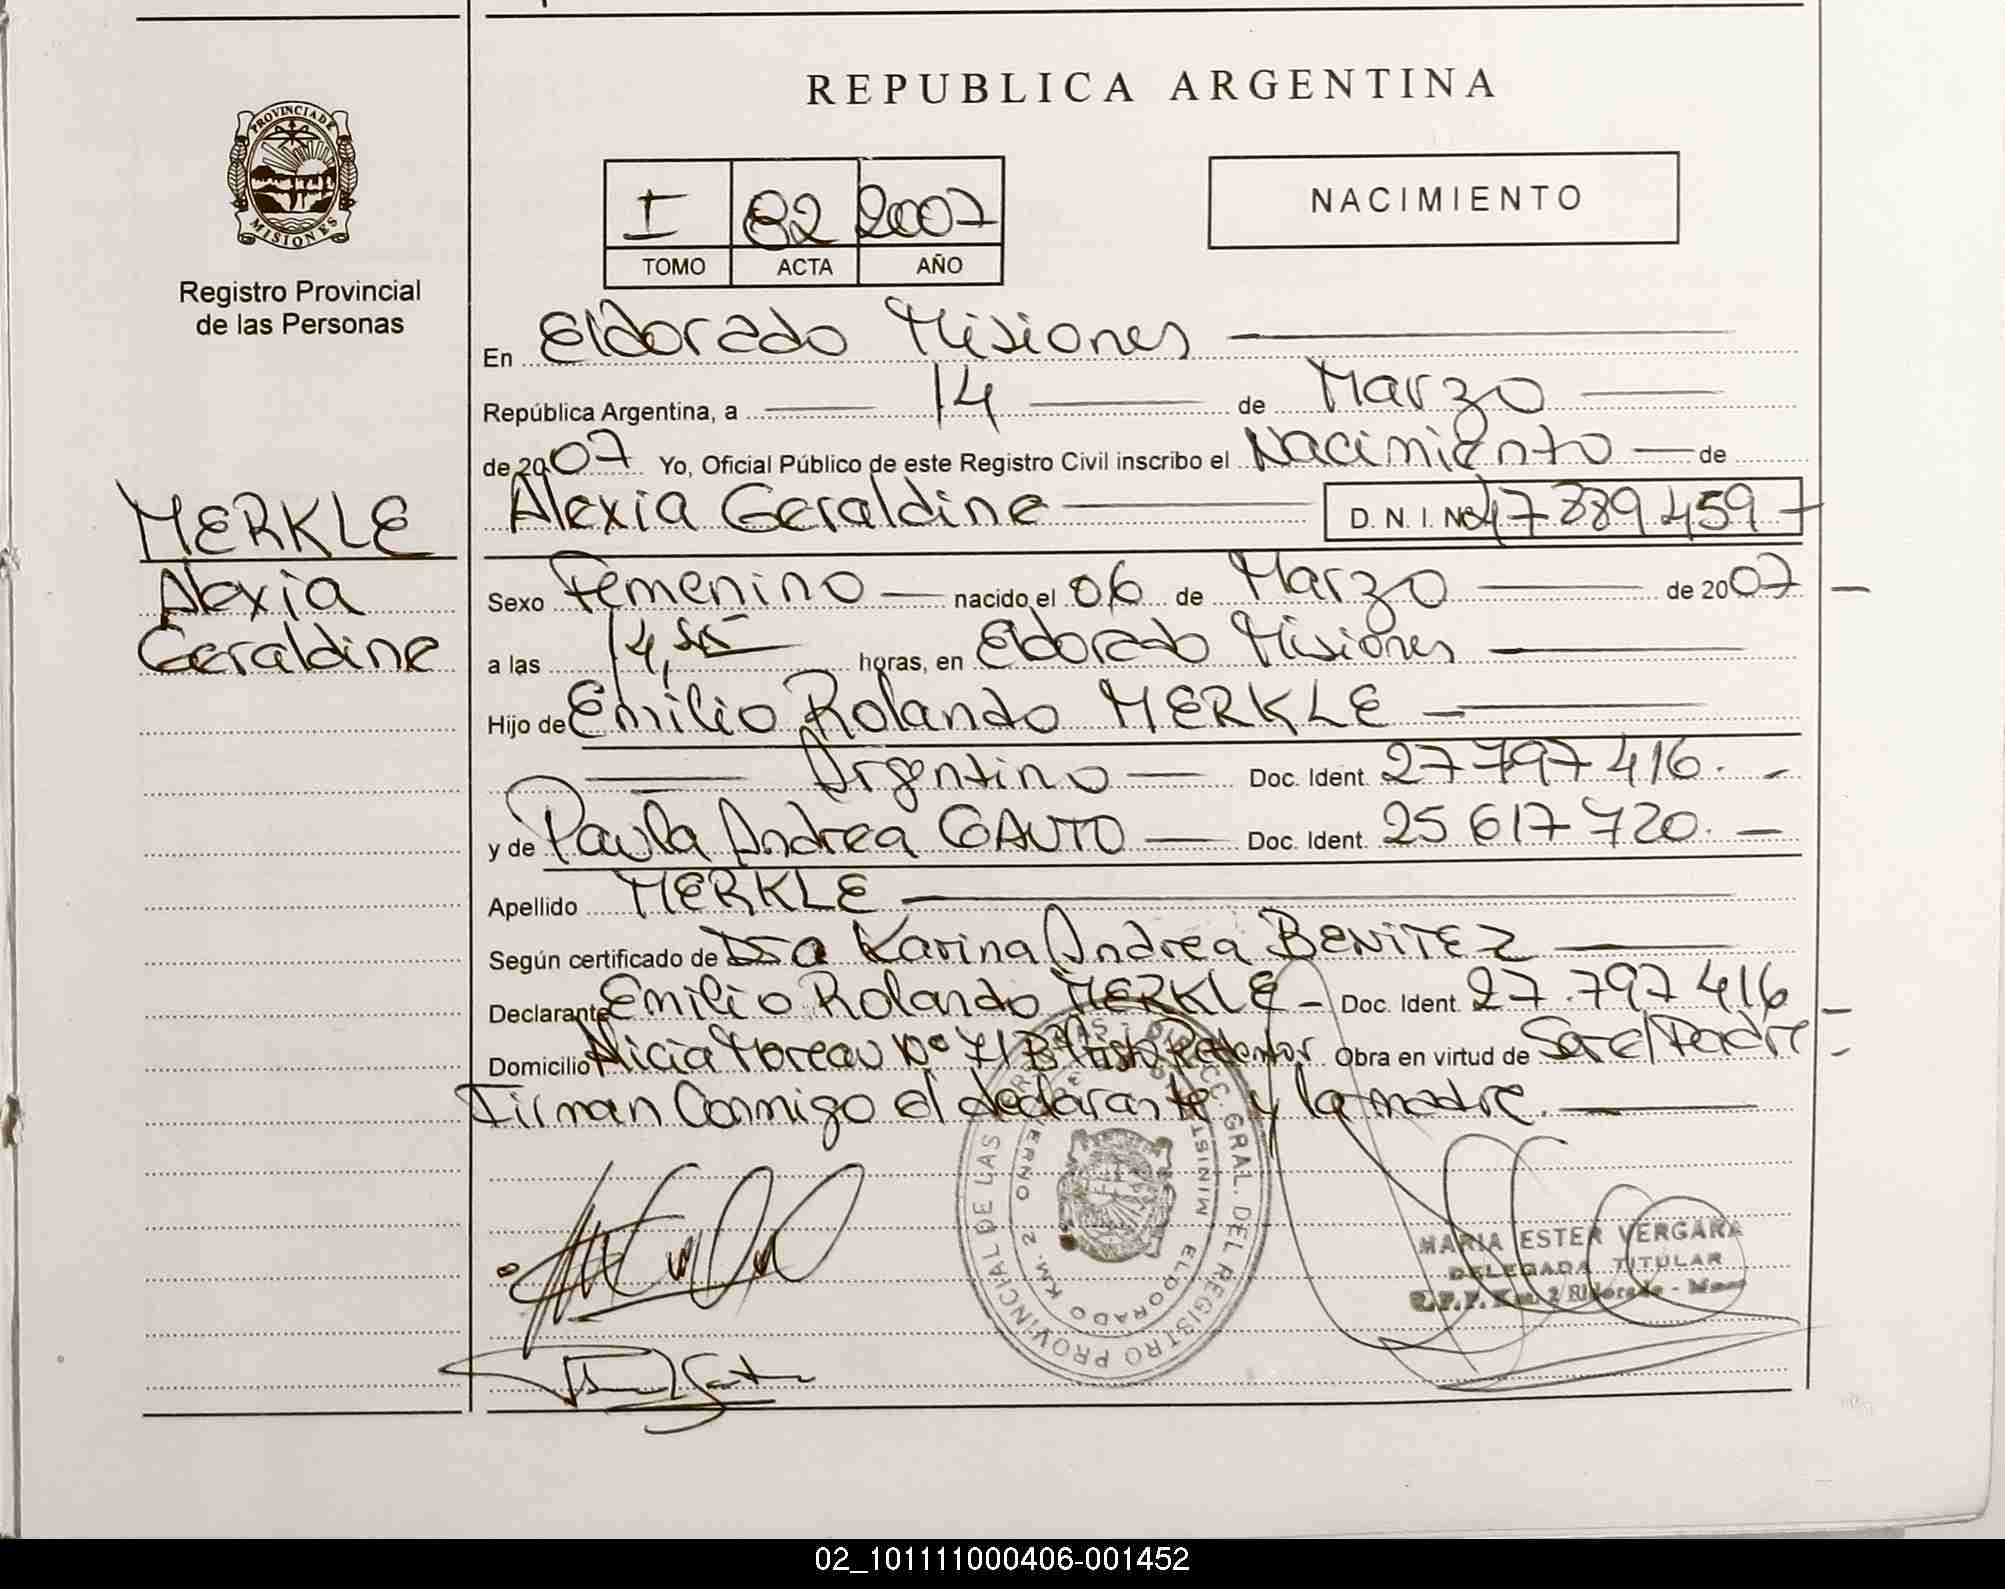 REPUBLICA ARGENTINA
PROVINCIA DE MISIONES
Registro Provincial
de las Personas
I 82 2007
TOMO ACTA AÑO
NACIMIENTO
En Eldorado Misiones
República Argentina, a 14 de Marzo
de 2007 Yo, Oficial Público de este Registro Civil inscribo el Nacimiento de
Alexia Geraldine D. N. I. Nº 47 889 459
MERKLE
Alexia
Geraldine
Sexo Femenino nacido el 06 de Marzo de 2007
a las 14,45 horas, en Eldorado Misiones
Hijo de Emilio Rolando MERKLE
Argentino Doc. Ident. 27 797 416.
y de Paula Andrea GAUTO Doc. Ident. 25 617 720.
Apellido MERKLE
Según certificado de Dra Karina Andrea BENITEZ
Declarante Emilio Rolando MERKLE Doc. Ident. 27.797 416
Domicilio Alicia Moreau Nº 71 Bº Cristo Redentor Obra en virtud de Ser el Padre
Firman Conmigo el declarante y la madre.
DIRECC. GRAL. DEL REGISTRO PROVINCIAL DE LAS PERSONAS
ELDORADO KM. 2
MARIA ESTER VERGARA
DELEGADA TITULAR
R.P.P. Km. 2 Eldorado - Mnes
02_101111000406-001452